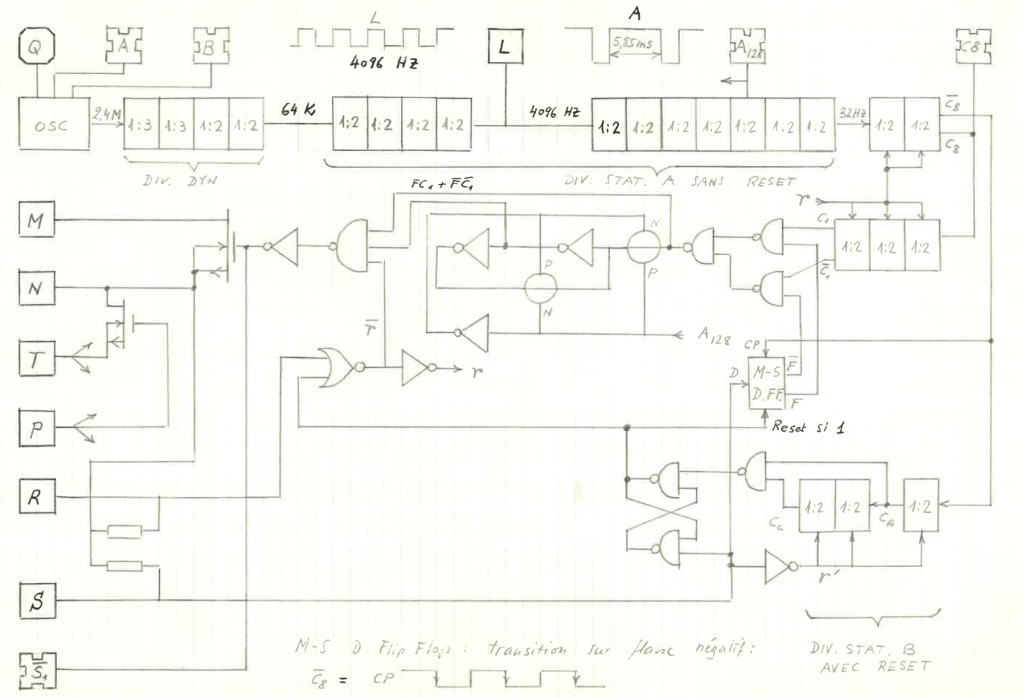 L
A
Q
A
B
4096 HZ
L
5,85ms
A128
C8
OSC
2,4M
1:3 1:3 1:2 1:2
64 K
1:2 1:2 1:2 1:2
4096 HZ
1:2 1:2 1:2 1:2 1:2 1:2 1:2
32HZ
1:2 1:2
C̅8
C8
DIV. DYN
DIV. STAT. A SANS RESET
FC1 + F̅C̅1
r
C1
M
N
P
1:2 1:2 1:2
C̅1
N
P
N
r̅
A128
T
r
CP
D
M-S
D.FF.
F̅
F
P
Reset si 1
R
Cc
1:2 1:2
CA
1:2
r'
S
M-S D Flip Flop : transition sur flanc négatif :
C̅8 = CP
DIV. STAT. B
AVEC RESET
S̅1